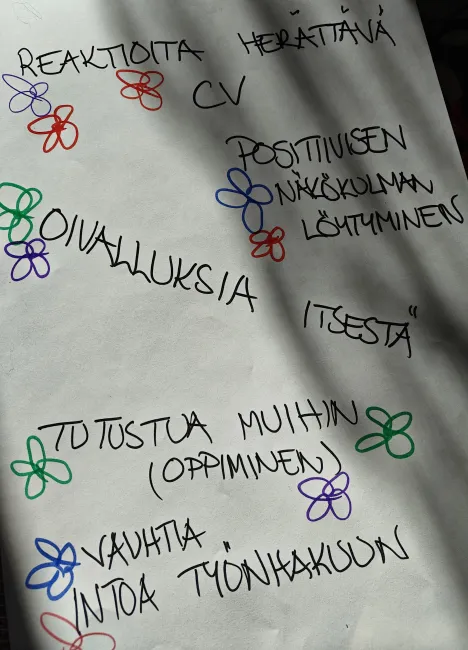 REAKTIOITA HERÄTTÄVÄ
CV
POSITIIVISEN
NÄKÖKULMAN
LÖYTYMINEN
OIVALLUKSIA
ITSESTÄ
TUTUSTUA MUIHIN
(OPPIMINEN)
VAUHTIA
INTOA TYÖNHAKUUN